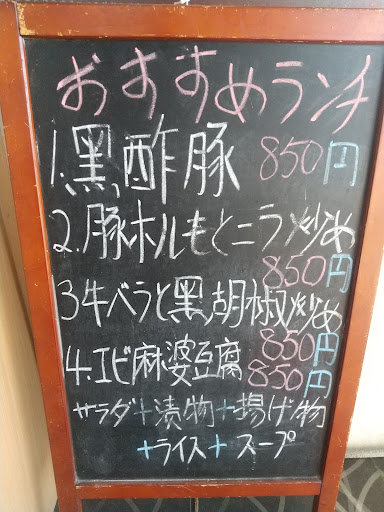 おすすめランチ
1.黒酢豚 850円
2.豚ホルもとニラ炒め
850円
3牛ベラと黒胡椒炒め
850円
4.エビ麻婆豆腐 850円
サラダ+漬物+揚げ物
+ライス+スープ